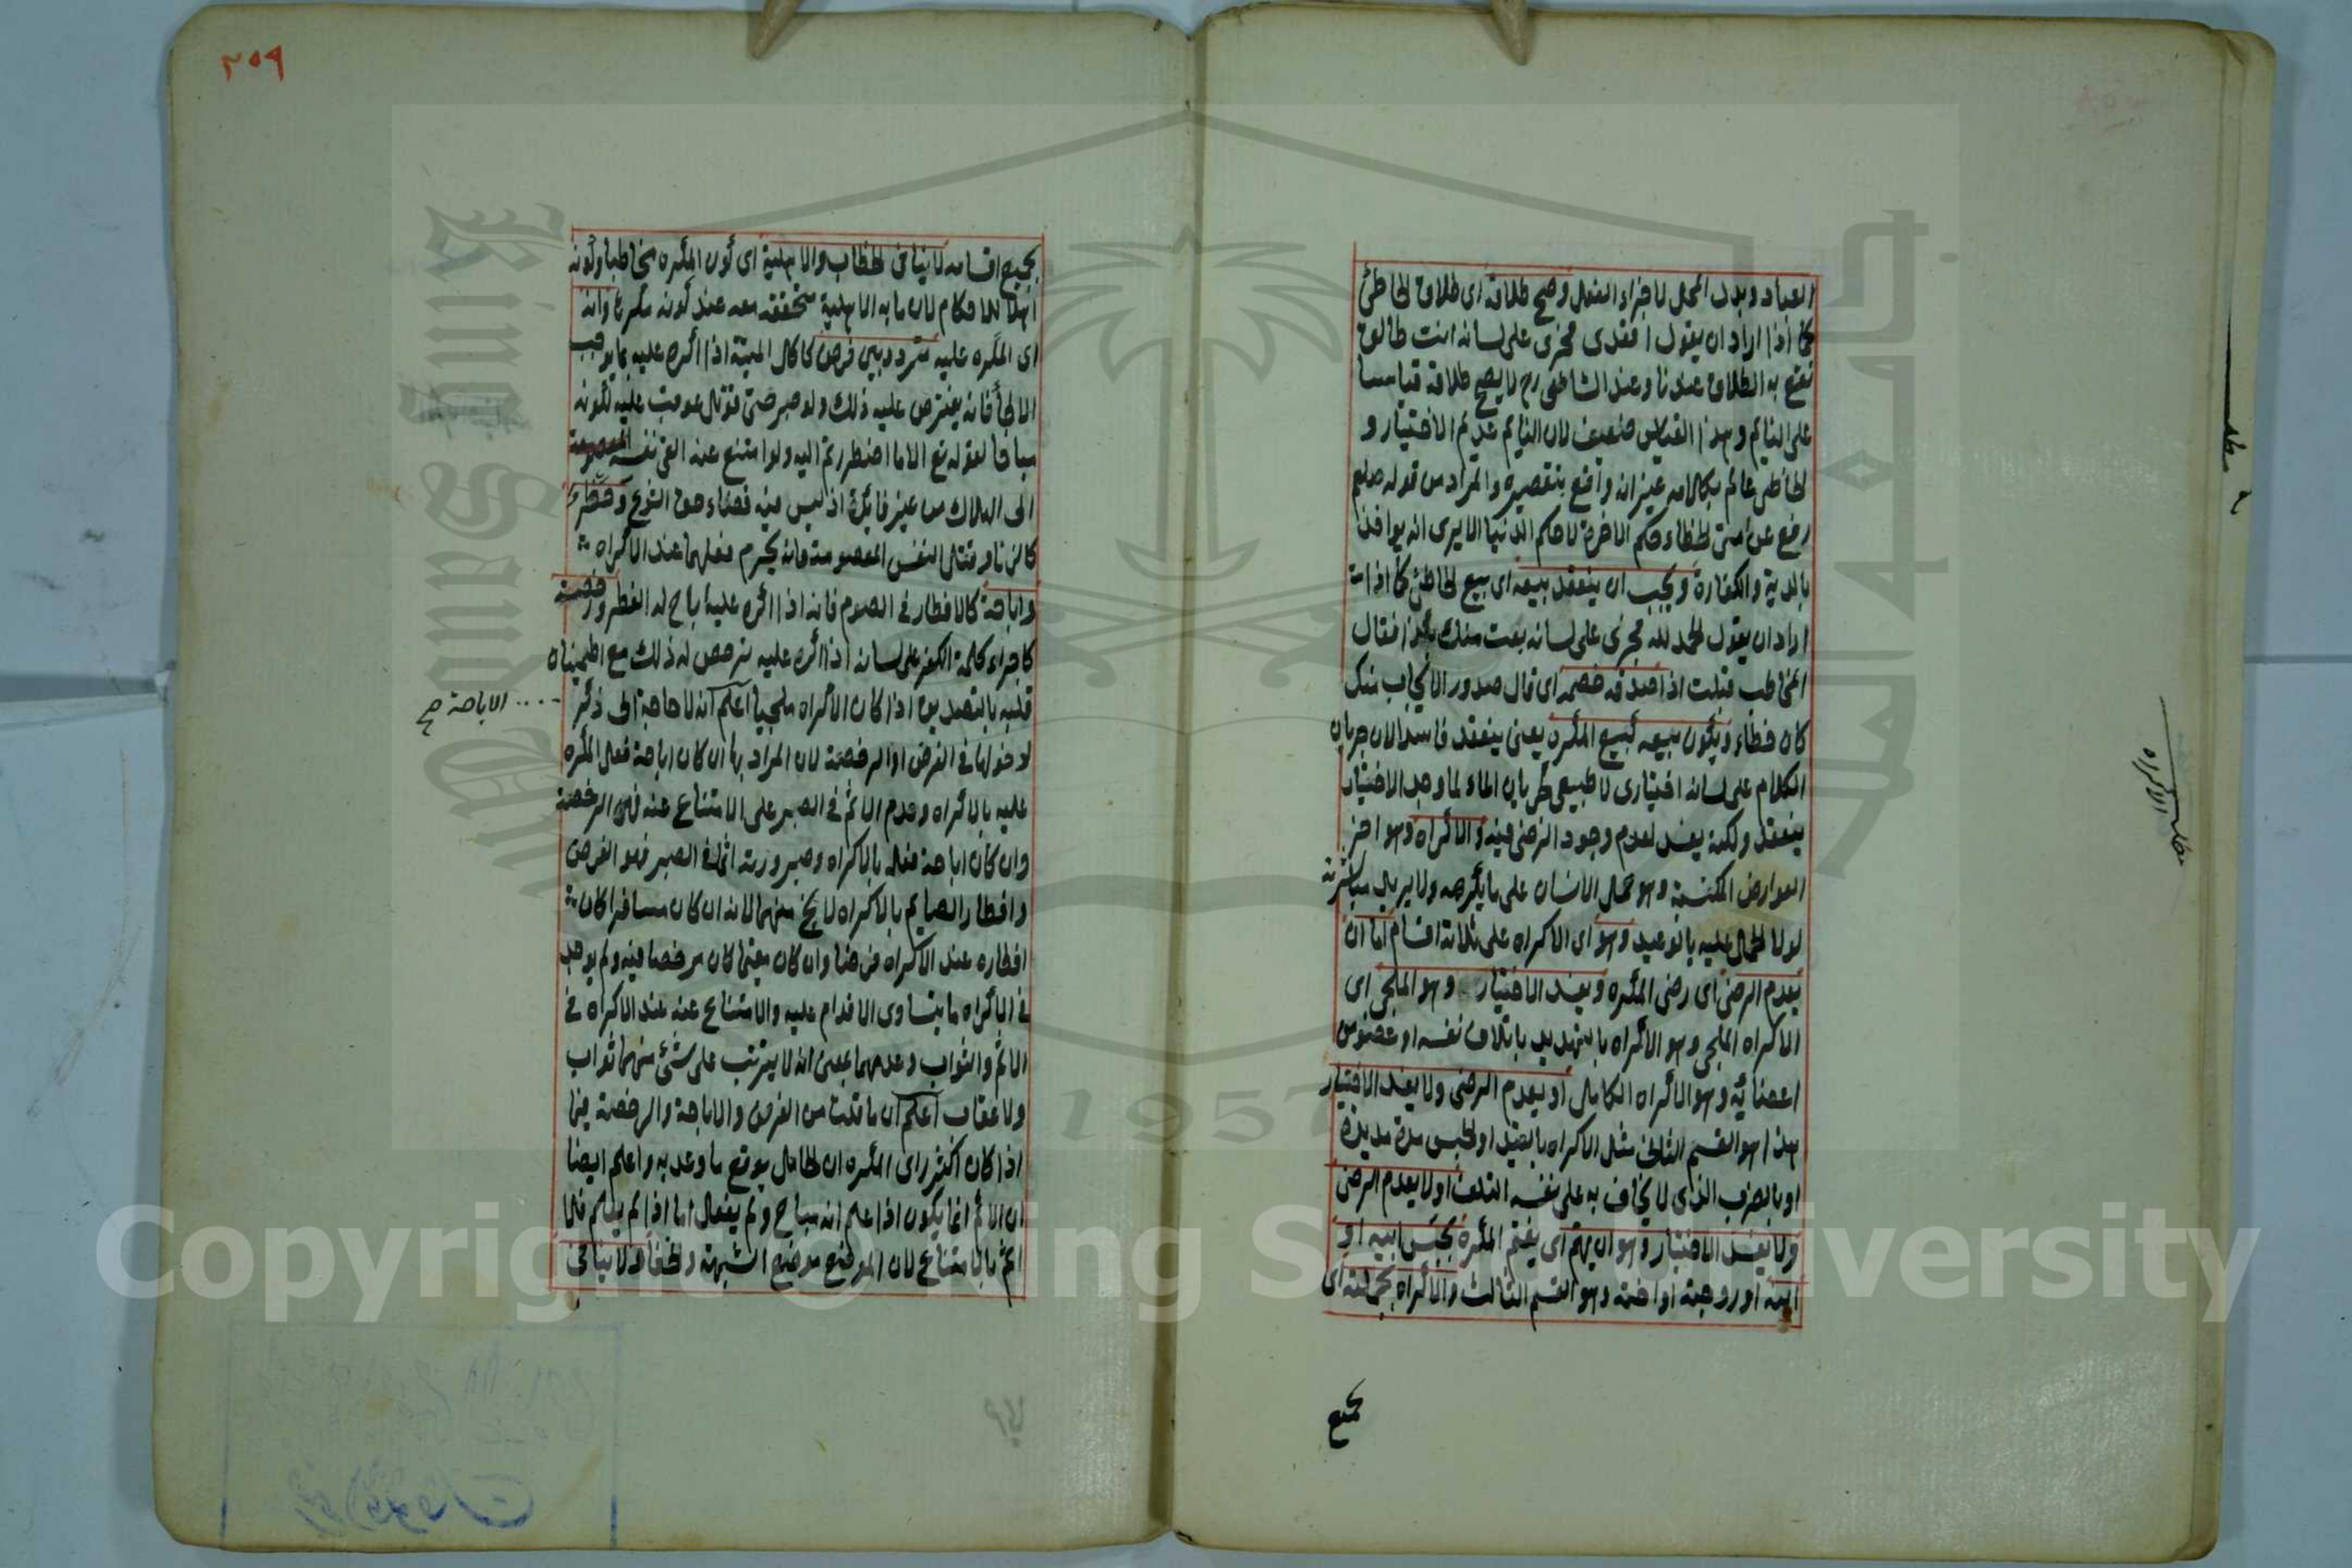 العباد وبدل المحل لا جزاء الفعل وصح طلاقه اى طلاق الخاطئ
كما اذا اراد ان يقول اقعدى فجرى على لسانه انت طالق
تقع به الطلاق عندنا وعند الشافعى رح لا يصح طلاقه قياسا
على النايم وهذا القياس ضعيف لان النايم عديم الاختيار و
الخاطئ عالم بكلامه غير انه واقع بتقصيره والمراد من قوله صلعم
رفع عن امتى الخطاء حكم الاخرة لا حكم الدنيا الا يرى انه يواخذ
بالدية والكفارة ويجب ان ينعقد بيعه اى بيع الخاطئ كما اذا
اراد ان يقول الحمد لله فجرى على لسانه بعت منك بكذا فقال
المخاطب قبلت اذا صدقه خصمه اى قال صدور الايجاب منك
كان خطاء ويكون بيعه كبيع المكره يعنى ينعقد فاسدا لان جريان
الكلام على لسانه اختيارى لا طبيعى كجريان الماء لما وجد الاختيار
ينعقد ولكنه يفسد لعدم وجود الرضى فيه والاكراه وهو اخر
العوارض المكتسبة وهو حمل الانسان على ما يكرهه ولا يريد مباشرته
لولا الحمل عليه بالوعيد وهو اى الاكراه على ثلاثة اقسام اما ان
يعدم الرضى اى رضى المكره ويفسد الاختيار وهو الملجى اى
الاكراه الملجى وهو الاكراه بالتهديد باتلاف نفسه او عضو من
اعضائه وهو الاكراه الكامل او يعدم الرضى ولا يفسد الاختيار
هذا هو القسم الثانى مثل الاكراه بالقيد او الحبس مدة مديدة
او بالضرب الذى لا يخاف به على نفسه التلف او لا يعدم الرضى
ولا يفسد الاختيار وهو ان يهتم اى يغتم المكره بحبس ابيه او
ابنه او زوجته او اخته وهو القسم الثالث والاكراه بجملته اى
بجميع
مطلب الاكراه
٢٥٩
بجميع اقسامه لا ينافى الخطاب والاهلية اى كون المكره مخاطبا وكونه
اهلا للاحكام لان ما به الاهلية متحققة معه عند كونه مكرها وانه
اى المكره عليه متردد بين فرض كاكل الميتة اذا اكره عليه بما يوجب
الالجأ فانه يفترض عليه ذلك ولو صبر حتى قوتل عوقب عليه لكونه
مباحا لقوله تع الا ما اضطررتم اليه ولو امتنع عنه القى نفسه المعصومة
الى الهلاك من غير فائدة اذ ليس فيه قضاء حق الشرع وحظر
كالزنا وقتل النفس المعصومة فانه يحرم فعلهما عند الاكراه
واباحة كالافطار فى الصوم فانه اذا اكره عليه اباح له الفطر ورخصة
كاجراء كلمة الكفر على لسانه اذا اكره عليه يرخص له ذلك مع اطمينان
قلبه بالتصديق اذا كان الاكراه ملجيا اعلم انه لا حاجة الى ذكر
الاباحة صح
لدخولها فى الفرض او الرخصة لان المراد بها ان كان اباحة فعل المكره
عليه بالاكراه وعدم الاثم فى الصبر على الامتناع عنه فهى الرخصة
وان كان اباحة فعله بالاكراه وصيرورته اثما فى الصبر فهو الفرض
وافطار الصايم بالاكراه لا يخ منهما لانه ان كان مسافرا كان
افطاره عند الاكراه فرضا وان كان مقيما كان مرخصا فيه ولم يوجد
فى الاكراه ما يتساوى الاقدام عليه والامتناع عنه عند الاكراه فى
الاثم والثواب وعدمهما بمعنى انه لا يترتب على شئ منهما ثواب
ولا عقاب اعلم ان ما قلت من الفرض والاباحة والرخصة فيما
اذا كان اكثر راى المكره ان الحامل يوقع ما وعد به واعلم ايضا
ان الاثم انما يكون اذا علم انه مباح ولم يفعل اما اذا لم يعلم فلا
اثم بالامتناع لان الموضع موضع الشبهة والخفاء ولا ينافى
Copyright © King Saud University
King Saud University
1957